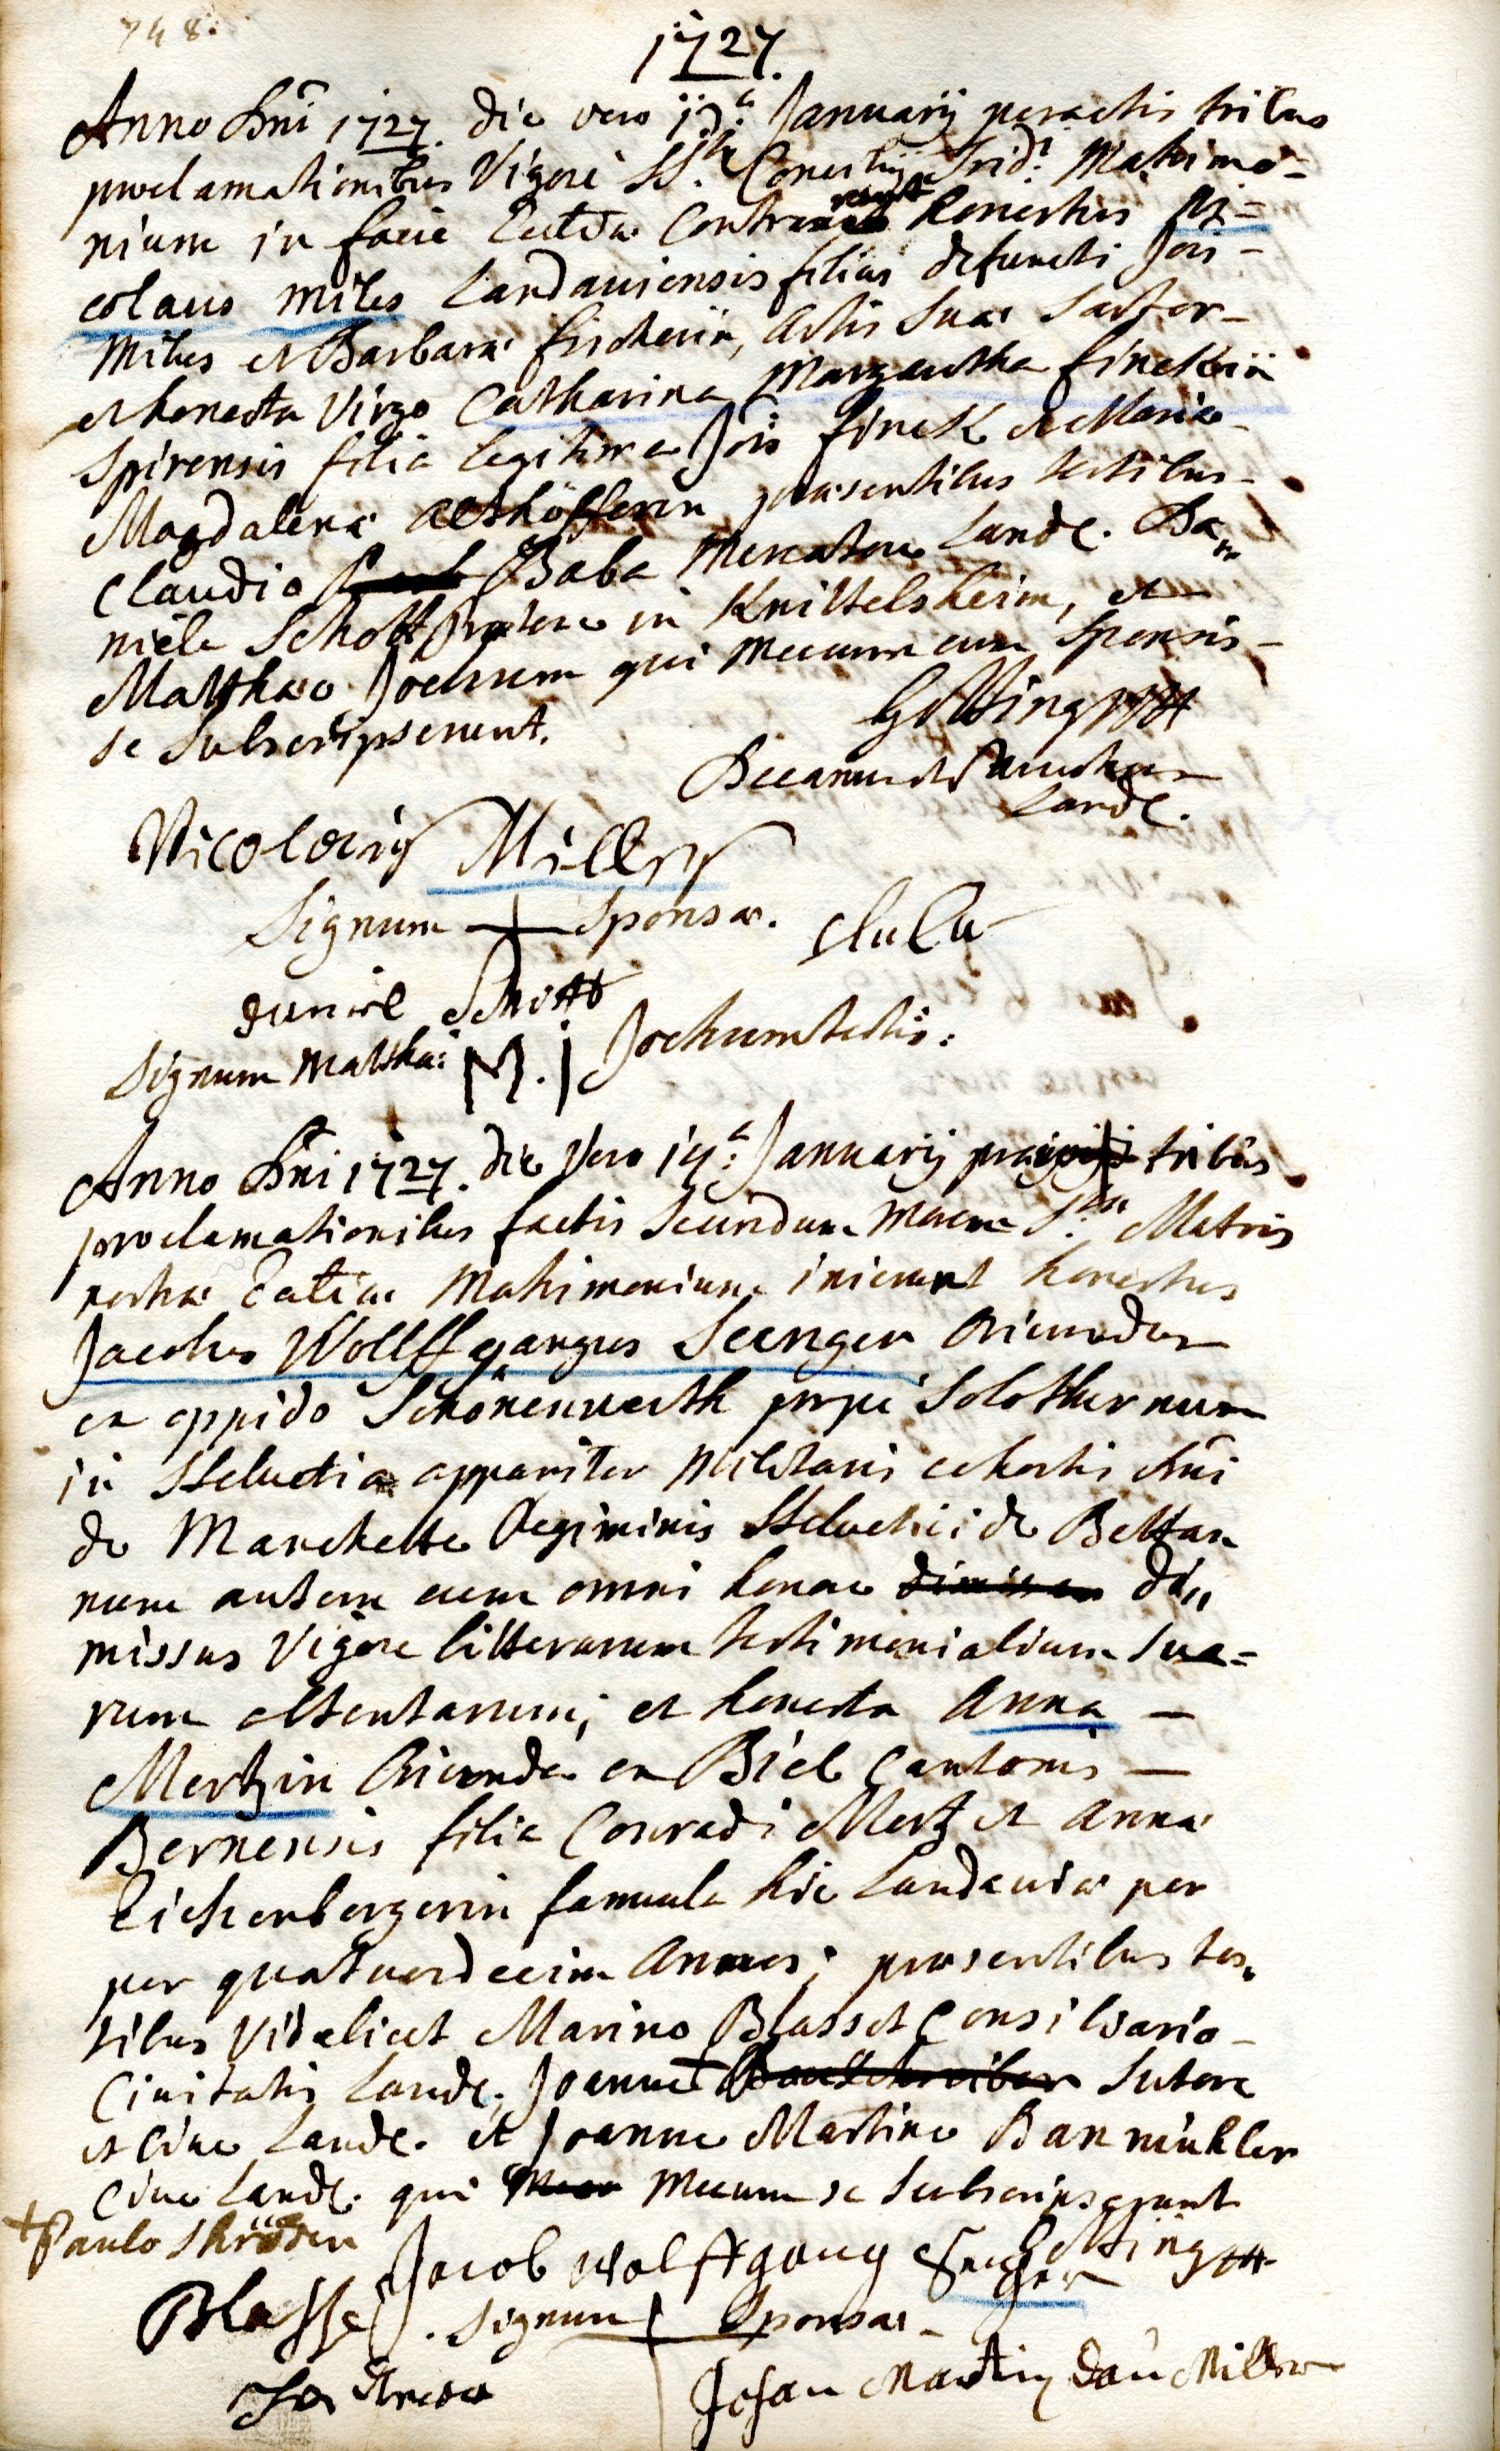 748.
1727.
Anno Dni 1727. die vero 13.a Januarij peractis tribus
proclamationibus Vigore SS.ti Concilij Trid: Matrimo=
nium in facie Ecclae Contraxerunt honestus Ni=
colaus Miles Landaviensis filius defuncti Jois
Miles et Barbarae fischerin, Artis Suae Sartor
et honesta Virgo Catharina Margaretha finckin
Spirensis filia legitima Jois finck et Mariae
Magdalenae Althöfferin praesentibus testibus
Claudio Baba Mercatore Landc. Da,,
niele Schott in Knittelsheim, et
Matthaeo Jochum qui Mecum cum Sponsis
se Subscripserunt.
Götting
Decanus et Parochus
Landc.
Nicolaus Miller
Signum + Sponsae.
daniel Schott
Signum Matthaei M.j Jochum testis.
Anno Dni 1727. die Vero 14.a Januarij tribus
proclamationibus factis Secundum Morem S.tae Matris
nostrae Eccliae Matrimonium inierunt honestus
Jacobus Wollffgangus Seenger Oriundus
ex oppido Schönenwerth prope Solothurnum
in Helvetia appariter Militaris cohortis Dni
de Marchette Regiminis Helvetici de Bettan
nunc autem cum omni honore di,,
missus Vigore litterarum testimonialium sua=
rum ostentarum; et honesta Anna
Mertzin Oriunda ex Biel Cantonis
Bernensis filia Conradi Mertz et Annae
Eichenbergerin famula hic Landaviae per
per quatuordecim Annos; praesentibus tes,
tibus Videlicet Marino Blasset Consiliario
Civitatis Landc. Joanne + Sutore
et Cive Landc. et Joanne Martino Banmühler
Cive Landc. qui Mecum se Subscripserunt
+ Paulo Schröder Götting
Jacob Wolffgang Senger
Blasset. Signum + Sponsae
Johan Martin Ban Miller